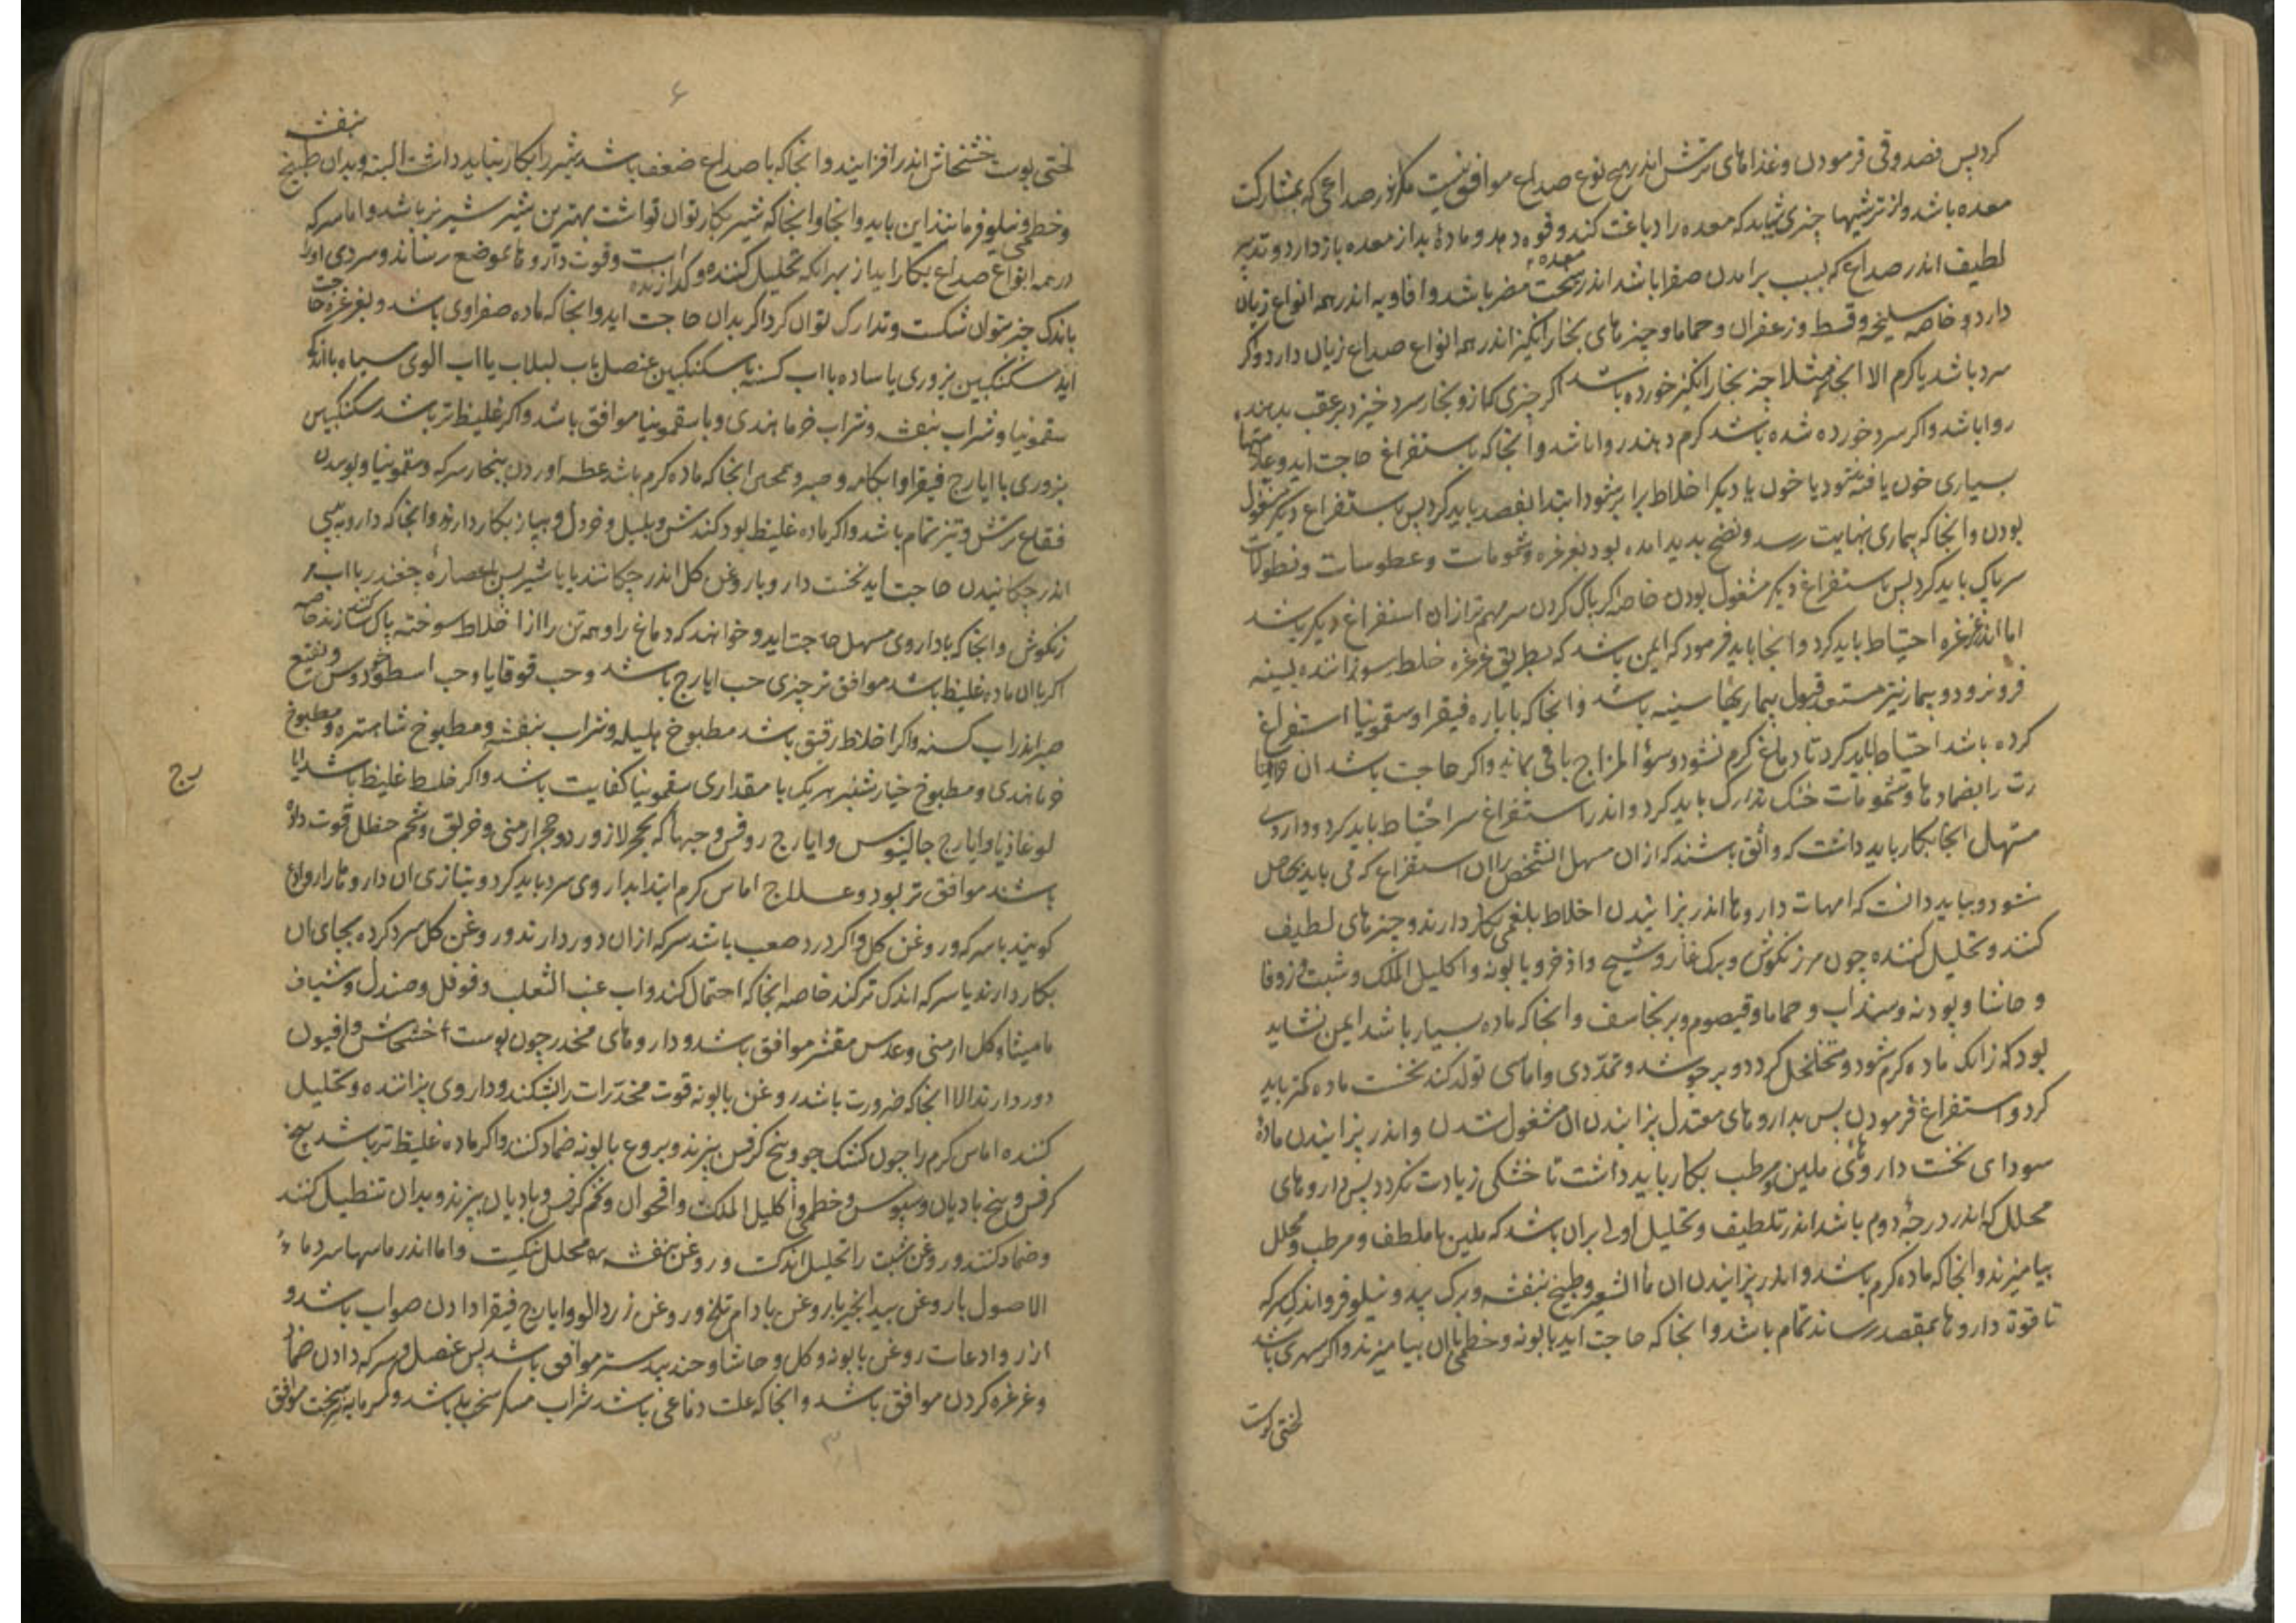 کرد پس فصد و قی فرمودن و غذاهای ترش اندر هیچ نوع صداع موافق نیست مکر اندر صداعی که بمشارکت
معده باشد و از ترشیها چیزی شاید که معده را دباغت کند و قوه دهد و مادهٔ بد از معده باز دارد و تدبیر
لطیف اندر صداع که بسبب برامدن صفرا باشد اندر معده سخت مضر باشد و افاویه اندر همه انواع زیان
دارد و خاصه سلیخه و قسط و زعفران و حماما و چیزهای بخار انکیز اندر همه انواع صداع زیان دارد و اکر
سرد باشد یا کرم الا انجا که مثلا چیز بخار انکیز خورده باشد اکر چیزی کز او بخار سرد خیزد بر عقب بدهند
روا باشد و اکر سرد خورده شده باشد کرم دهند روا باشد و انجا که باستفراغ حاجت اید و علامتها
بسیاری خون یافته شود یا خون با دیکر اخلاط برابر شود ابتدا بفصد باید کرد پس باستفراغ دیکر مشغول
بودن و انجا که بیماری بنهایت رسد و نضج پدید امده بود بغرغره و شمومات و عطوسات و نطولات
سر پاک باید کرد پس باستفراغ دیکر مشغول بودن خاصه اکر پاک کردن سر مهم‌تر از ان استفراغ دیکر باشد
اما اندر غرغره احتیاط باید کرد و انجا باید فرمود که ایمن باشد که بطریق غرغره خلط سوزاننده بسینه
فرو نرود و بیمار نیز مستعد قبول بیماریهاء سینه باشد و انجا که بایاره فیقرا و سقمونیا استفراغ
کرده باشد احتیاط باید کرد تا دماغ کرم نشود و سوء المزاج باقی بماند و اکر حاجت باشد ان
را بضمادها و شمومات خنک تدارک باید کرد و اندر استفراغ سر احتیاط باید کرد و داروی
مسهل انجا بکار باید داشت که واثق باشند که از ان مسهل ان شخص را ان استفراغ که می باید حاصل
شود و بباید دانست که امهات داروها اندر پزانیدن اخلاط بلغمی بکار دارند و چیزهای لطیف
کنند و تحلیل کننده چون مرزنکوش و برک غار و شیح و اذخر و بابونه و اکلیل الملک و شبت و زوفا
و حاشا و پودنه و سنداب و حماما و قیصوم و برنجاسف و انجا که ماده بسیار باشد ایمن نشاید
بود که زانک ماده کرم شود و متخلخل کردد و برجوشد و تمددی و اماسی تولد کند نخست ماده کمتر باید
کرد و استفراغ فرمودن پس بداروهای معتدل پزانیدن ان مشغول شدن و اندر پزانیدن مادهٔ
سودای نخست داروهای ملین مرطب بکار باید داشت تا خشکی زیادت نکردد پس داروهای
محلل که اندر درجهٔ دوم باشد اندر تلطیف و تحلیل اولی بران باشد که ملین با ملطف و مرطب و محلل
بیامیزند و انجا که ماده کرم باشد و اندر پزانیدن ان ماالشعیر و طبیخ بنفشه و برک بید و نیلوفر و اندک سرکه
تا قوة داروها بمقصد رساند تمام باشد و انجا که حاجت اید بابونه و خطمی با ان بیامیزند و اکر سهری باشد
لختی پوست
۶
لختی پوست خشخاش اندر افزایند و انجا که با صداع ضعف باشد شیر را بکار نباید داشت البته و بدان طبیخ بنفشه
و خطمی و نیلوفر مانند این باید و انجا و انجا که شیر بکار توان تواشت بهترین شیر شیر بز باشد و اما سرکه
در همه انواع صداع بکار اید از بهر انکه تحلیل کننده و کدازنده است و قوت داروها بموضع رساند و سردی او را
باندک چیز بتوان شکست و تدارک توان کرد اکر بدان حاجت اید و انجا که ماده صفراوی باشد و بغرغره حاجت
اید سکنکبین بزوری یا ساده با اب کسنه یا سکنکبین عنصل باب لبلاب یا اب الوی سیاه با اندک
سقمونیا و شراب بنفشه و شراب خرما هندی و با سقمونیا موافق باشد و اکر غلیظ تر باشد سکنکبین
بزوری با ایارج فیقرا و ابکامه و صبر و انجا که ماده کرم باشد عطسه اوردن ببخار سرکه و سقمونیا و بوییدن
فقاع ترش و تیز تمام باشد و اکر ماده غلیظ بود کندش و پلپل و خردل و پیاز بکار دارند و انجا که دارو به بینی
اندر چکانیدن حاجت اید نخست دارو با روغن کل اندر چکانند یا با شیر پس باعصارهٔ چغندر با اب مر
زنکوش و انجا که بداروی مسهل حاجت اید و خواهند که دماغ را و همه تن را از اخلاط سوخته پاک کنند خاصه
اکر با ان ماده غلیظ باشد موافق تر چیزی حب ایارج باشد و حب قوقایا و حب اسطوخودوس و نقیع
صبر اندر اب کسنه و اکر اخلاط رقیق باشد مطبوخ هلیله و شراب بنفشه و مطبوخ شاهتره و مطبوخ
خرما هندی و مطبوخ خیارشنبر هر یک با مقداری سقمونیا کفایت باشد و اکر خلط غلیظ باشد ایا
لوغاذیا و ایارج جالینوس و ایارج روفس و حبها که بحجر لازورد و حجر ارمنی و خربق و شحم حنظل قوت داده
رج
باشند موافق تر بود و علاج اماس کرم ابتدا بداروی سرد باید کرد و بتازی ان داروها را رواد ع
کویند با سرکه و روغن کل و اکر درد صعب باشد سرکه از ان دور دارند و روغن کل سرد کرده بجای ان
بکار دارند یا سرکه اندک تر کنند خاصه انجا که احتمال کند و اب عنب الثعلب و فوفل و صندل و شیاف
مامیثا و کل ارمنی و عدس مقشر موافق باشد و داروهای مخدر چون پوست خشخاش و افیون
دور دارند الا انجا که ضرورت باشد روغن بابونه قوت مخدرات را بشکند و داروی پزاننده و تحلیل
کننده اماس کرم را چون کشک جو و بیخ کرفس بپزند و بروغ بابونه ضماد کنند و اکر ماده غلیظ تر باشد بیخ
کرفس و بیخ بادیان و سپوس و خطمی و اکلیل الملک و اقحوان و تخم کرفس و بادیان بپزند و بدان تنطیل کنند
و ضماد کنند و روغن شبت را تحلیل اندکست و روغن بنفشه محلل نیکست و اما اندر ماسها سرد ماء
الاصول با روغن بید انجیر یا روغن بادام تلخ و روغن زردالو و ایارج فیقرا دادن صواب باشد و
از روادعات روغن بابونه و کل و حاشا و جندبیدستر موافق باشد پس عنصل و سرکه دادن ضماد
و غرغره کردن موافق باشد و انجا که علت دماغی باشد شراب مسکر سخت بد باشد و کرمابه سخت موافق